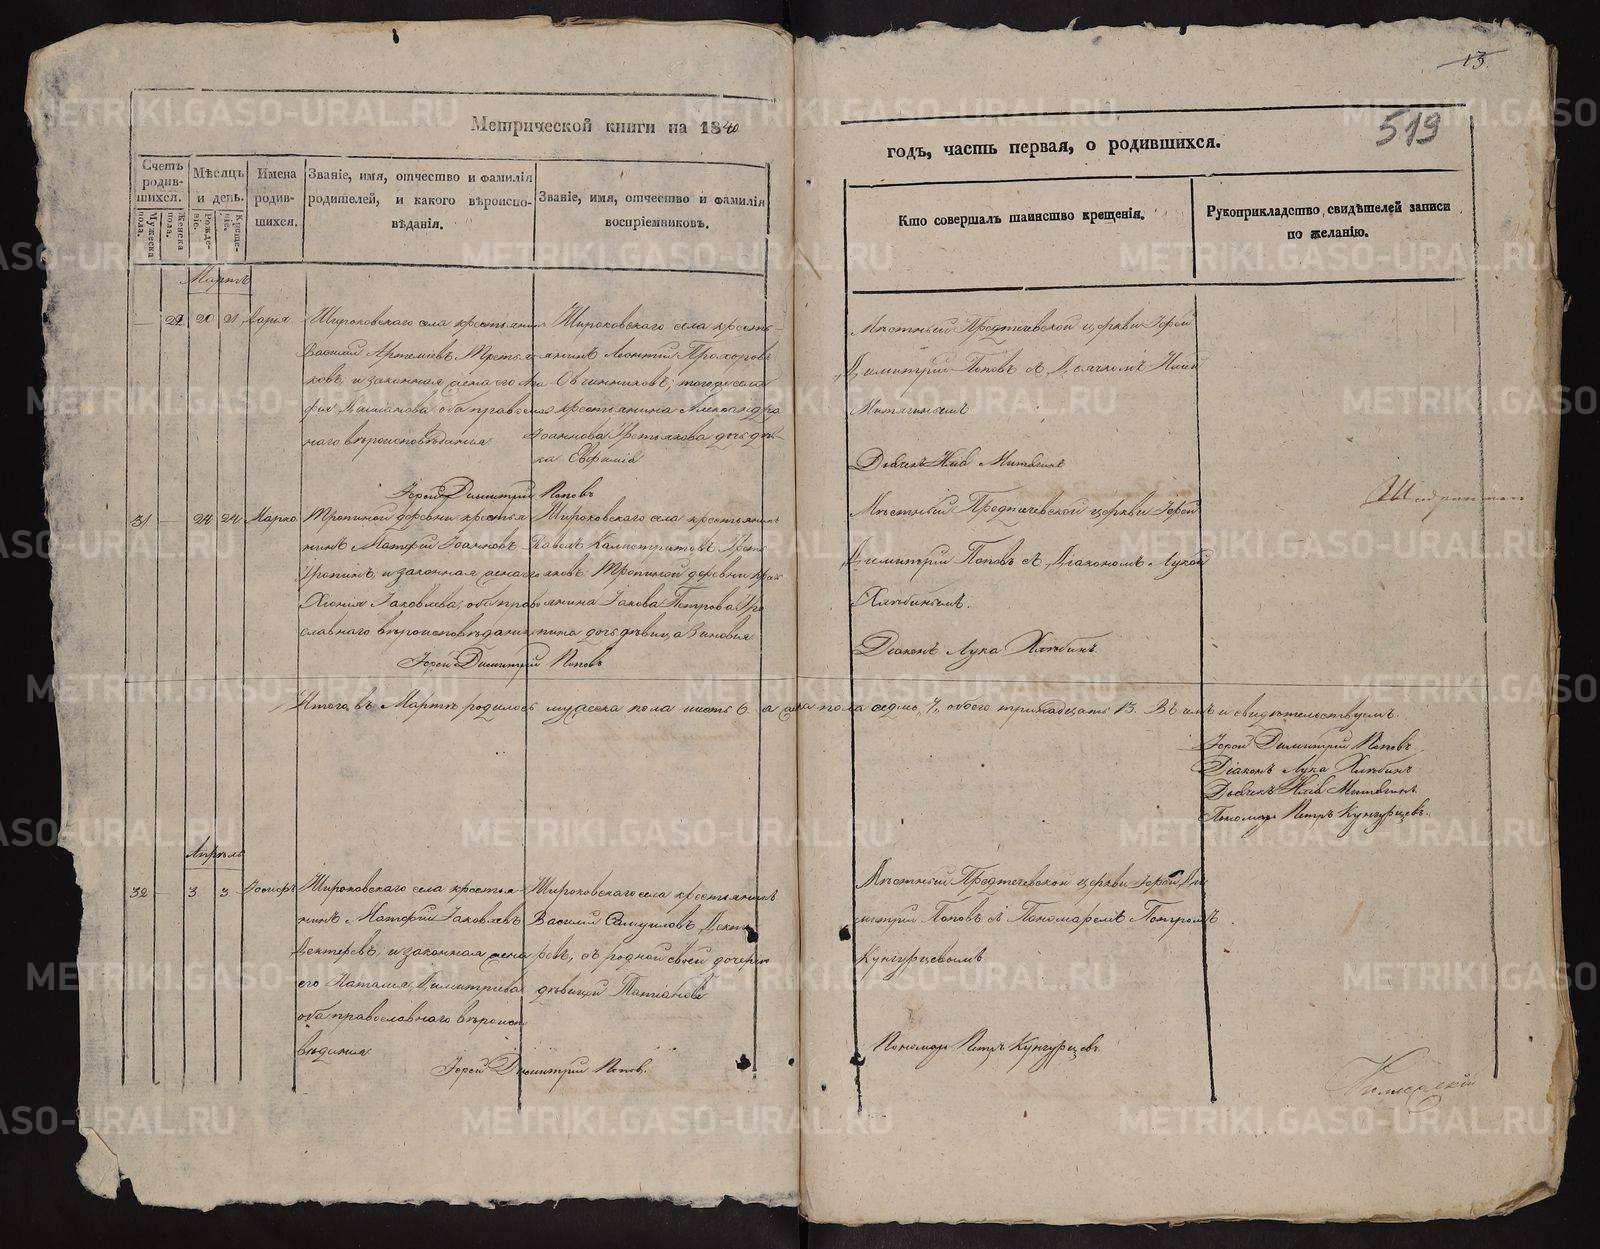 13.
519
Метрической книги на 1840
годъ, часть первая, о родившихся.
Счетъ родив-шихся.
Мужеска пола.
Женска пола.
Мѣсяцъ и день.
Рожде-нія.
Креще-нія.
Имена родив-шихся.
Званіе, имя, отчество и фамилія
родителей, и какого вѣроиспо-
вѣданія.
Званіе, имя, отчество и фамилія
воспріемниковъ.
Кто совершалъ таинство крещенія.
Рукоприкладство свидѣтелей записи
по желанію.
Мартъ
22 20 21 Марія
Широковскаго села крестьянинъ
Василий Артемьевъ Треть
ковъ, и законная жена его
оба правосла
внаго вѣроисповѣданія
Широковскаго села кресть-
янинъ Леонтий Прохоровъ
Овчинниковъ; тогоже села
крестьянина Александра
Іоаннова Третьякова дочь дѣв-
ка Евфимія
Іерей Димитрий Поповъ
Мѣстный Предтечевской церкви Іерей
Димитрий Поповъ съ Дьячкомъ
Дьячекъ
31 24 24 Марко
Тропиной деревни крестья
нинъ Матфий Іоанновъ
Тропинъ, и законная жена его
Хіонія Іаковлева, оба право
славнаго вѣроисповѣданія
Широковскаго села крестьянинъ
Павелъ Калистратовъ Треть
яковъ. Тропиной деревни крес
янина Іакова Петрова Тро
пина дочь дѣвица Зиновія
Іерей Димитрий Поповъ
Мѣстный Предтечевской церкви Іерей
Димитрий Поповъ съ Діакономъ Лукой
Хлѣбинымъ.
Діаконъ Лука Хлѣбинъ
Итого, въ Мартѣ родилось мужеска пола шесть 6. а женска пола седмь, 7, обоего тринадцать 13. Въ чемъ и свидѣтельствуемъ.
Іерей Димитрий Поповъ
Діаконъ Лука Хлѣбинъ
Дьячекъ
Пономарь Петръ Кунгурцевъ.
Апрѣль
32 3 3 Іосифъ
Широковскаго села крестья-
нинъ Матфий Іаковлевъ
Дехтеревъ, и законная жена
его Наталия Димитриева
оба православнаго вѣроиспо
вѣданія
Широковскаго села крестьянинъ
Василий Самуиловъ Дехте
ревъ, съ родной своей дочерью
дѣвицей Татіаной
Іерей Димитрий Поповъ.
Мѣстный Предтечевской церкви Іерей Ди
митрий Поповъ съ Пономаремъ Петромъ
Кунгурцевымъ
Пономарь Петръ Кунгурцевъ.
METRIKI.GASO-URAL.RU